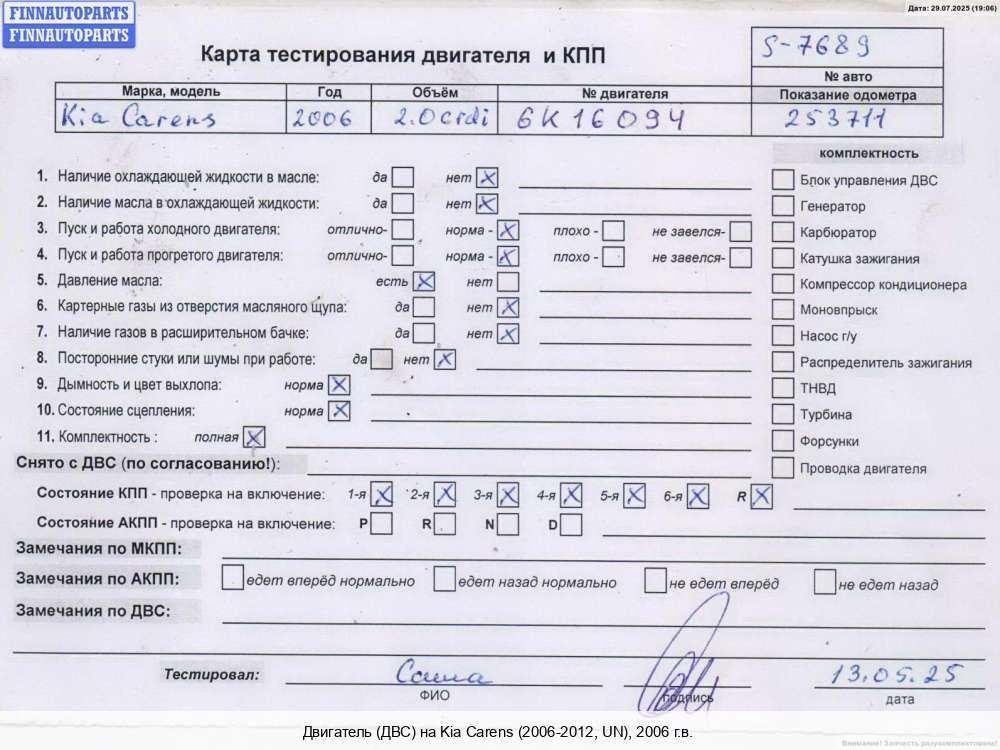 FINNAUTOPARTS
FINNAUTOPARTS
Дата: 29.07.2025 (19:06)
Карта тестирования двигателя и КПП
S-7689
№ авто
Марка, модель Год Объём № двигателя Показание одометра
Kia Carens 2006 2.0crdi 6K16094 253711
комплектность
1. Наличие охлаждающей жидкости в масле: да нет X
Блок управления ДВС
2. Наличие масла в охлаждающей жидкости: да нет X
Генератор
3. Пуск и работа холодного двигателя: отлично- норма - X плохо - не завелся-
Карбюратор
4. Пуск и работа прогретого двигателя: отлично- норма - X плохо - не завелся-
Катушка зажигания
5. Давление масла: есть X нет
Компрессор кондиционера
6. Картерные газы из отверстия масляного щупа: да нет X
Моновпрыск
7. Наличие газов в расширительном бачке: да нет X
Насос г/у
8. Посторонние стуки или шумы при работе: да нет X
Распределитель зажигания
9. Дымность и цвет выхлопа: норма X
ТНВД
10. Состояние сцепления: норма X
Турбина
11. Комплектность : полная X
Форсунки
Снято с ДВС (по согласованию!):
Проводка двигателя
Состояние КПП - проверка на включение: 1-я X 2-я X 3-я X 4-я X 5-я X 6-я X R X
Состояние АКПП - проверка на включение: P R N D
Замечания по МКПП:
Замечания по АКПП: едет вперёд нормально едет назад нормально не едет вперёд не едет назад
Замечания по ДВС:
Тестировал: Саша 13.05.25
ФИО подпись дата
Двигатель (ДВС) на Kia Carens (2006-2012, UN), 2006 г.в.
Внимание! Запчасть разукомплектована!